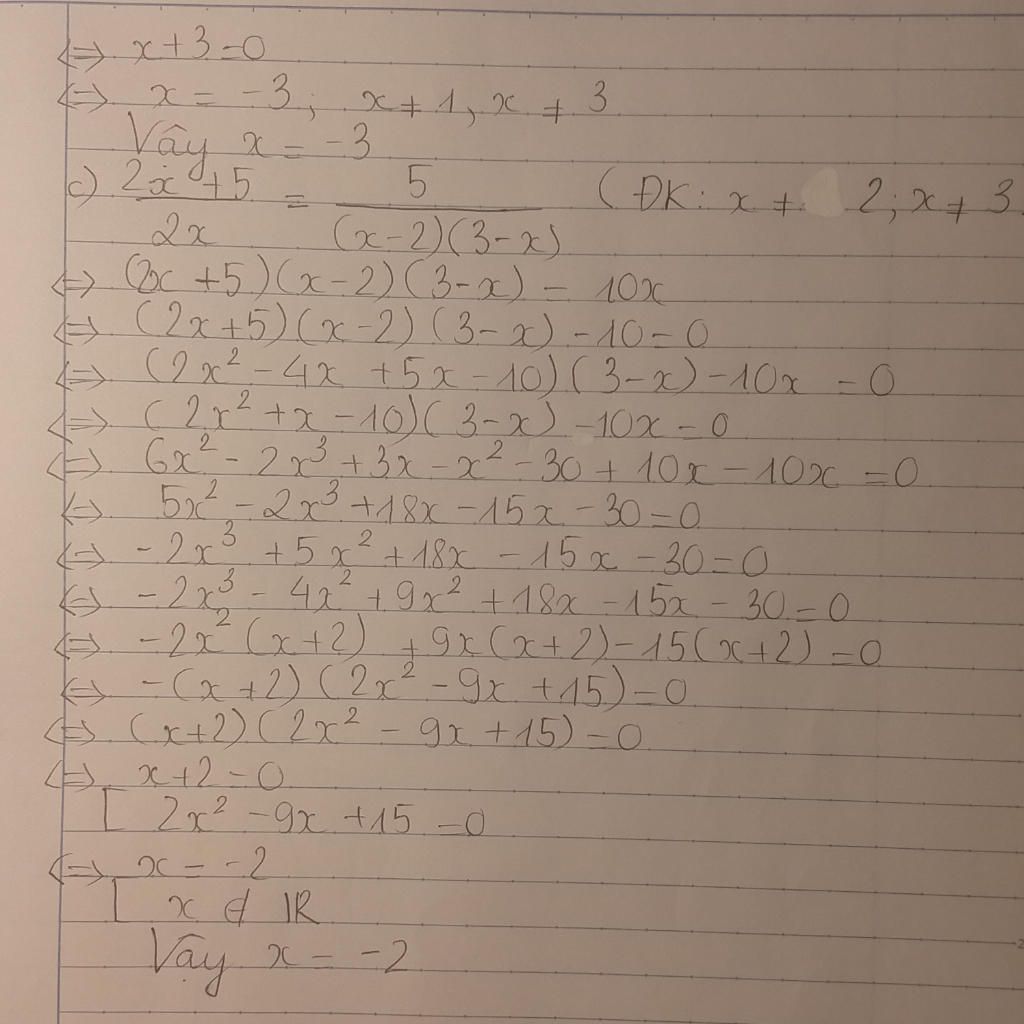 ⇔ x + 3 = 0
⇔ x = -3; x ≠ 1, x ≠ 3
Vậy x = -3
c) (2x + 5)/(2x) = 5/((x-2)(3-x)) (ĐK: x ≠ 2; x ≠ 3
⇔ (2x + 5)(x - 2)(3 - x) = 10x
⇔ (2x + 5)(x - 2)(3 - x) - 10 = 0
⇔ (2x² - 4x + 5x - 10)(3 - x) - 10x = 0
⇔ (2x² + x - 10)(3 - x) - 10x = 0
⇔ 6x² - 2x³ + 3x - x² - 30 + 10x - 10x = 0
⇔ 5x² - 2x³ + 18x - 15x - 30 = 0
⇔ -2x³ + 5x² + 18x - 15x - 30 = 0
⇔ -2x³ - 4x² + 9x² + 18x - 15x - 30 = 0
⇔ -2x² (x + 2) + 9x(x + 2) - 15(x + 2) = 0
⇔ -(x + 2)(2x² - 9x + 15) = 0
⇔ (x + 2)(2x² - 9x + 15) = 0
⇔ x + 2 = 0
[ 2x² - 9x + 15 = 0
⇔ x = -2
[ x ∉ ℝ
Vậy x = -2